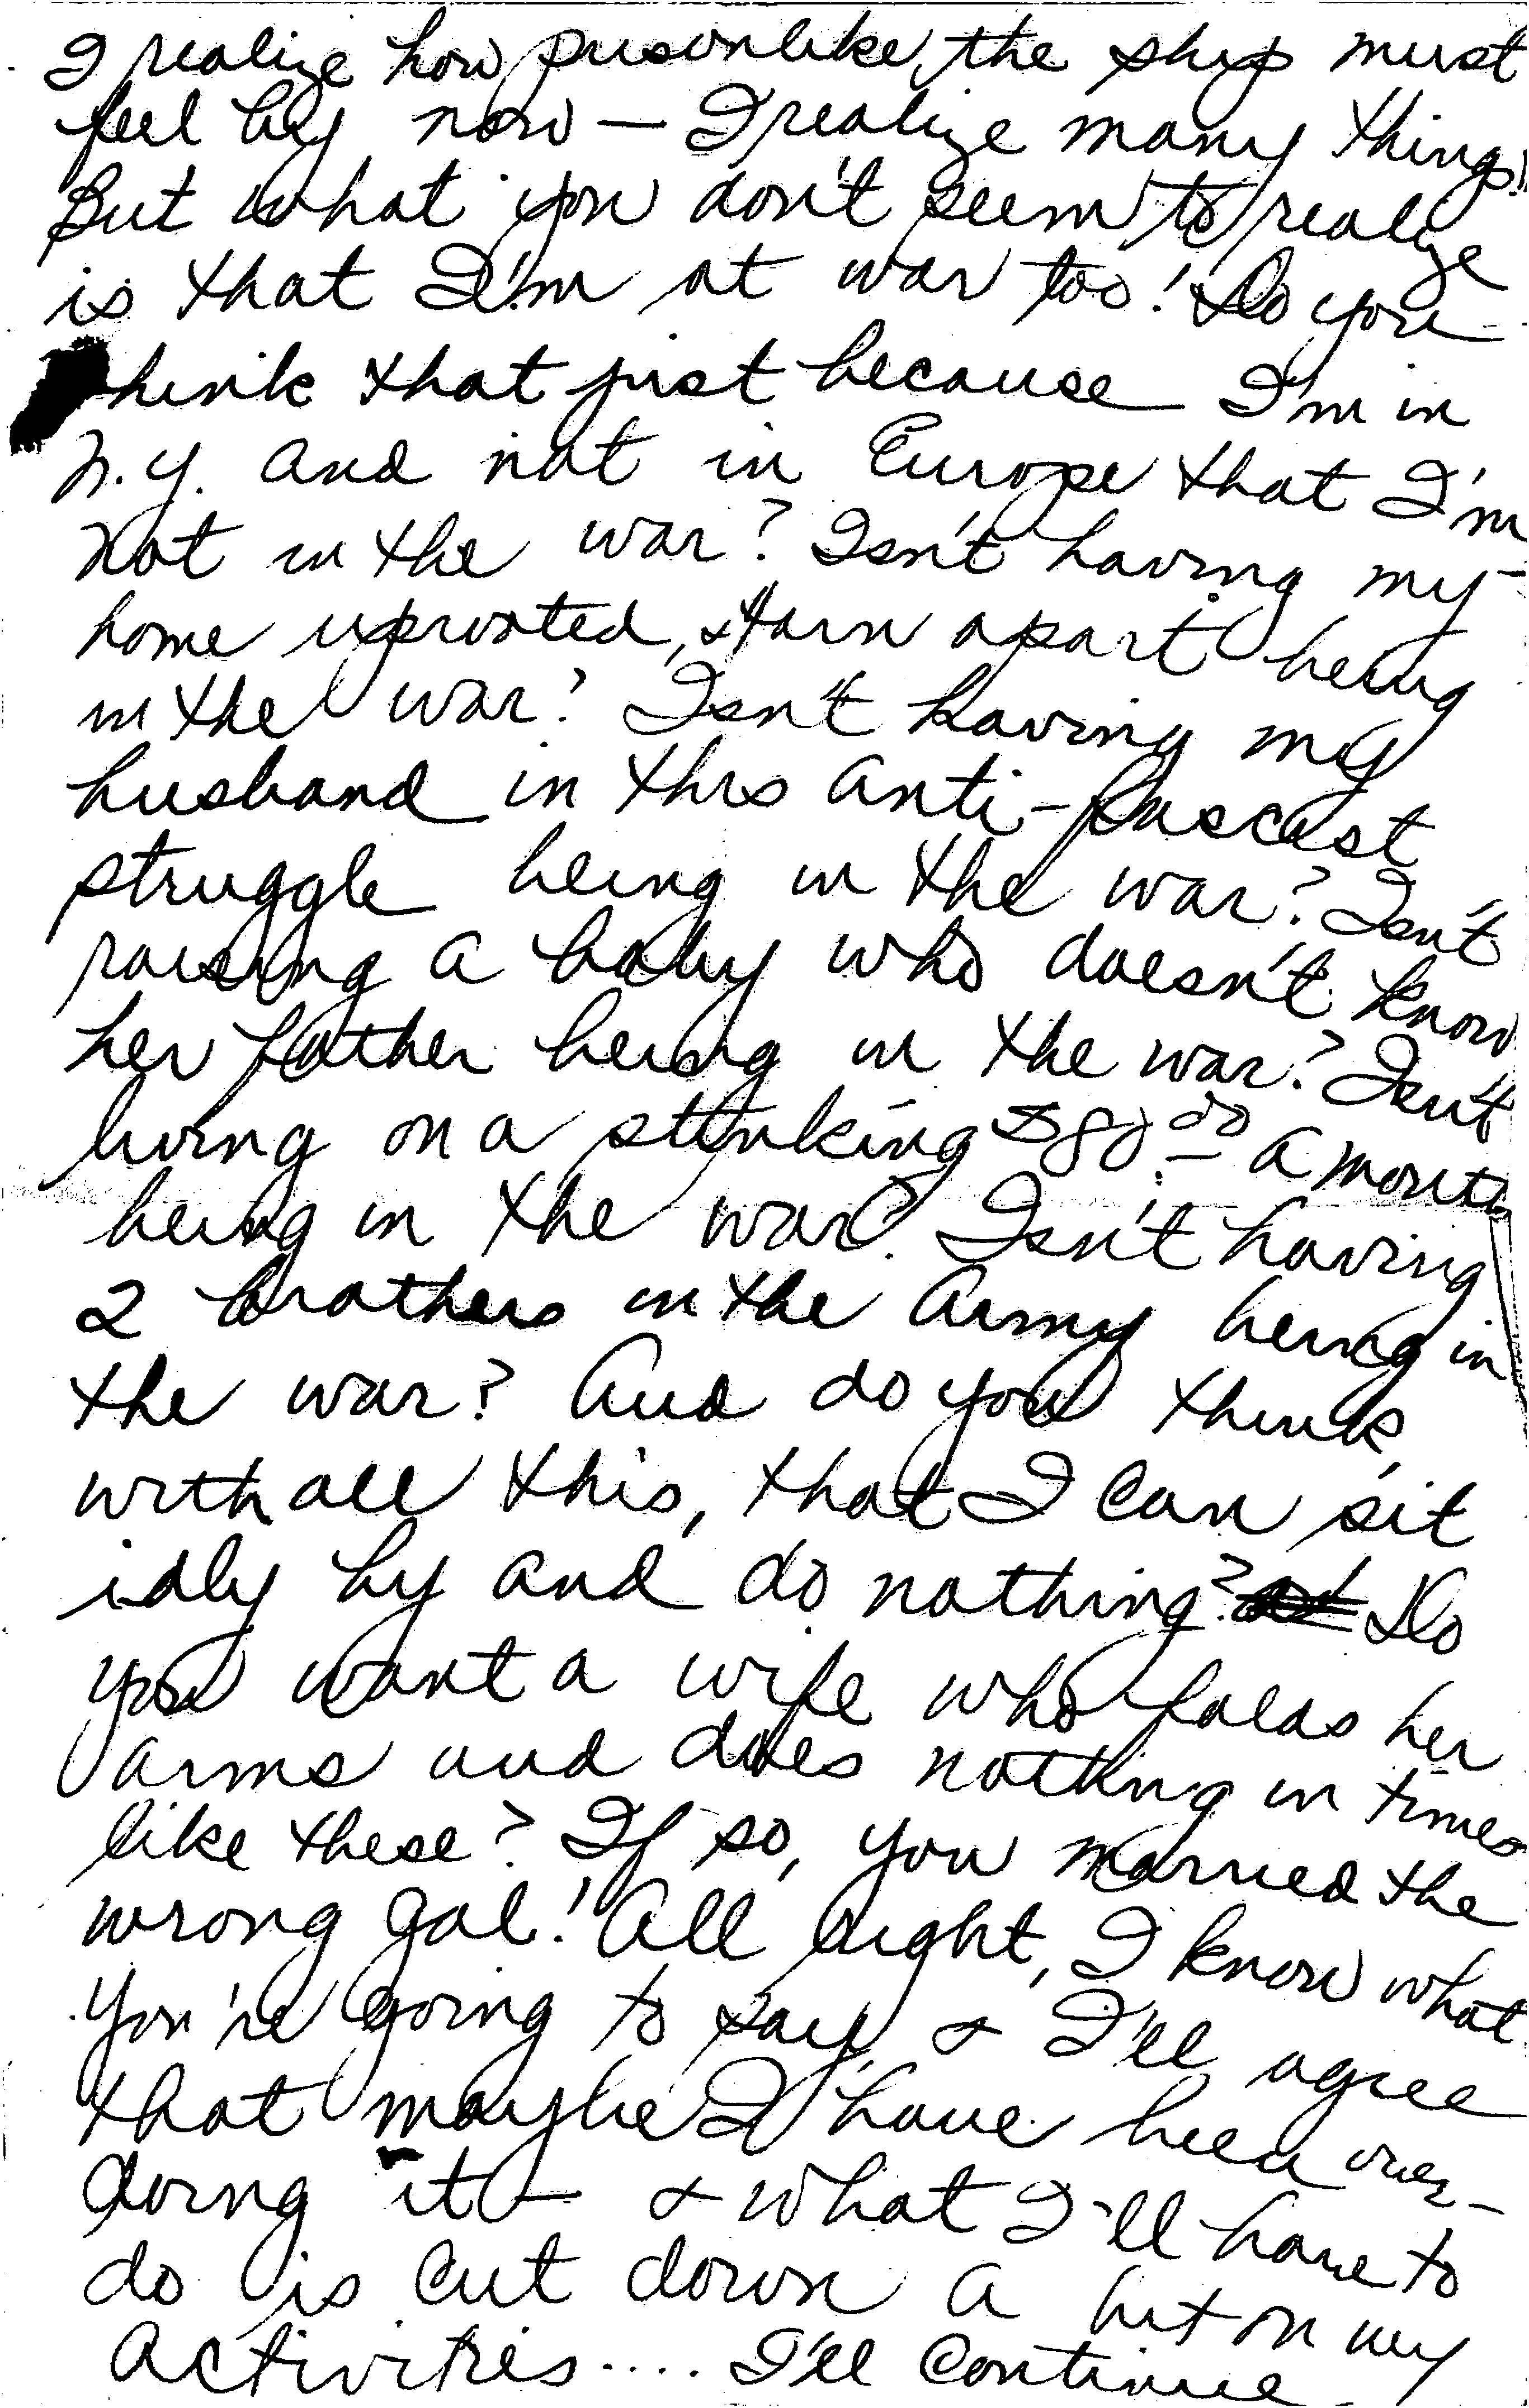 I realize how prisonlike, the ship must
feel by now — I realize many things!
But what you don't seem to realize
is that I'm at war too! Do you
think that just because I'm in
N.Y. and not in Europe that I'm
not in the war? Isn't having my
home uprooted, & torn apart being
in the war? Isn't having my
husband in this anti-fascist
struggle being in the war? Isn't
raising a baby who doesn't know
her father being in the war? Isn't
living on a stinking $80.00 a month
being in the war? Isn't having
2 brothers in the Army being in
the war? And do you think,
with all this, that I can sit
idly by and do nothing? Do
you want a wife who folds her
arms and does nothing in times
like these? If so, you married the
wrong gal! All right, I know what
you're going to say, & I'll agree
that maybe I have been over-
doing it — & what I'll have to
do is cut down a bit on my
activities.... I'll continue